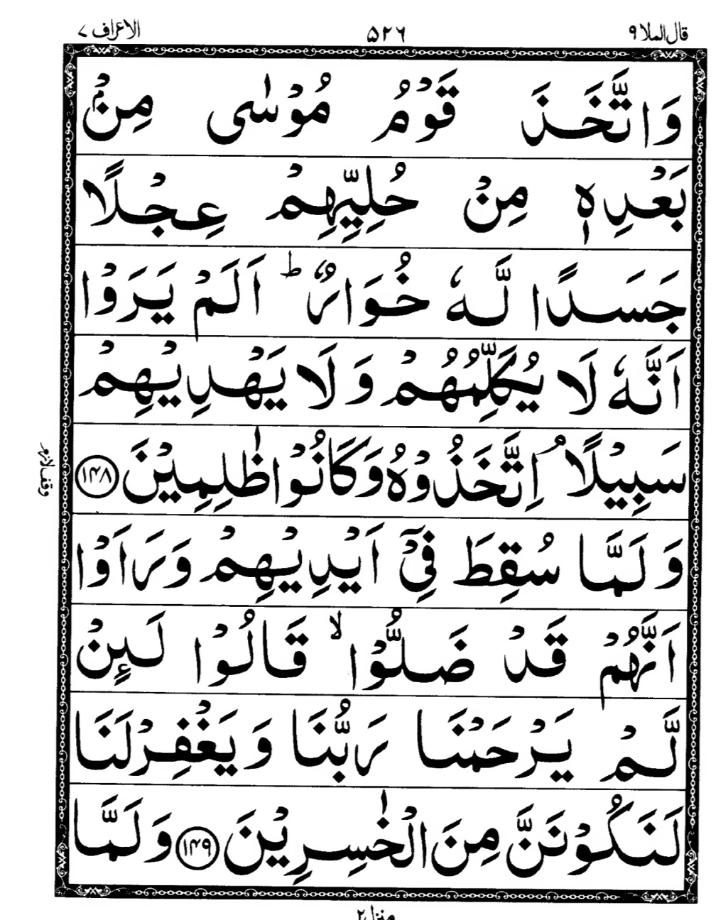 قال الملا ٩ ۵۲۶ الاعراف ٧
وَاتَّخَذَ قَوْمُ مُوْسٰى مِنْۢ
بَعْدِهٖ مِنْ حُلِيِّهِمْ عِجْلًا
جَسَدًا لَّهٗ خُوَارٌ ؕ اَلَمْ يَرَوْا
اَنَّهٗ لَا يُكَلِّمُهُمْ وَلَا يَهْدِيْهِمْ
سَبِيْلًا ۘ اِتَّخَذُوْهُ وَكَانُوْا ظٰلِمِيْنَ ﴿۱۴۸﴾
وقف لازم
وَلَمَّا سُقِطَ فِيْٓ اَيْدِيْهِمْ وَرَاَوْا
اَنَّهُمْ قَدْ ضَلُّوْا ۙ قَالُوْا لَىِٕنْ
لَّمْ يَرْحَمْنَا رَبُّنَا وَيَغْفِرْ لَنَا
لَنَكُوْنَنَّ مِنَ الْخٰسِرِيْنَ ﴿۱۴۹﴾ وَلَمَّا
منزل ۲